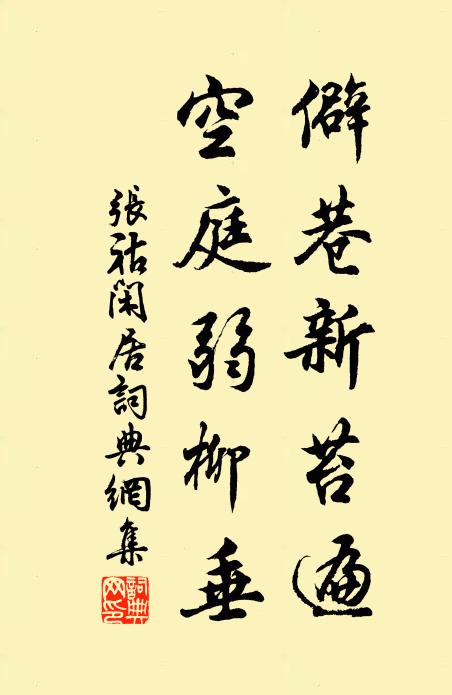 僻巷新苔遍
空庭弱柳垂
張祜閑居詞典網集
詞典網印